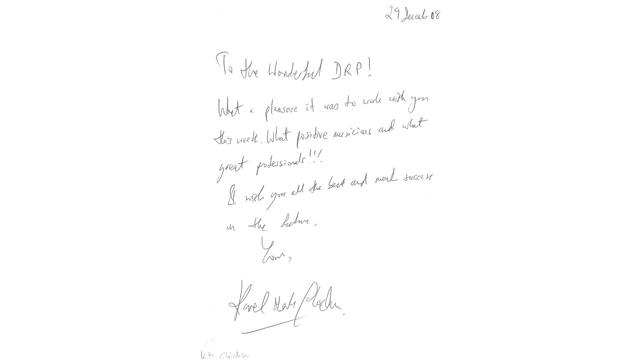 29 08
To the Wonderful DRP!
What a pleasure it was to work with you
this week. What positive musicians and what
great professionals!!!
I wish you all the best and much success
in the future.
Yours,
Karel Mark Chichon